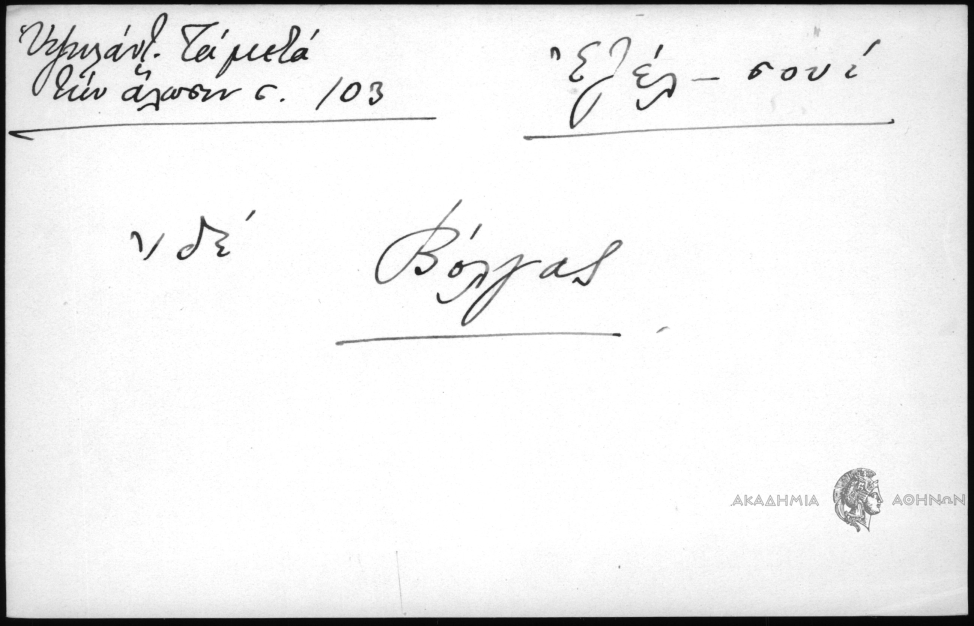 Ὑψηλάντ. Τά μετά
τήν ἅλωσιν σ. 103
Ἐζέλ - σουΐ
ἰδέ
Βόλγας
ΑΚΑΔΗΜΙΑ ΑΘΗΝΩΝ